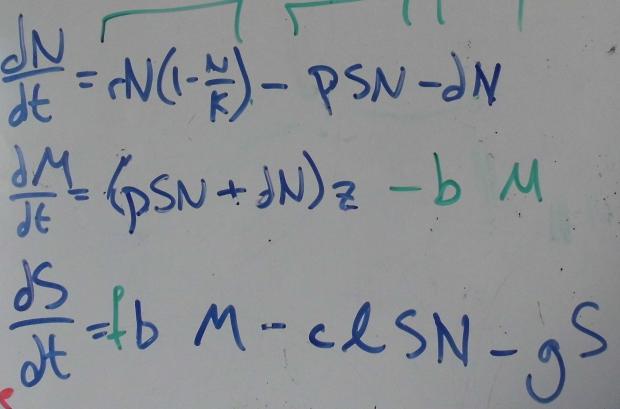 dN/dt = rN(1-N/K) - pSN - dN
dM/dt = (pSN + dN)z - b M
dS/dt = fb M - clSN - gS